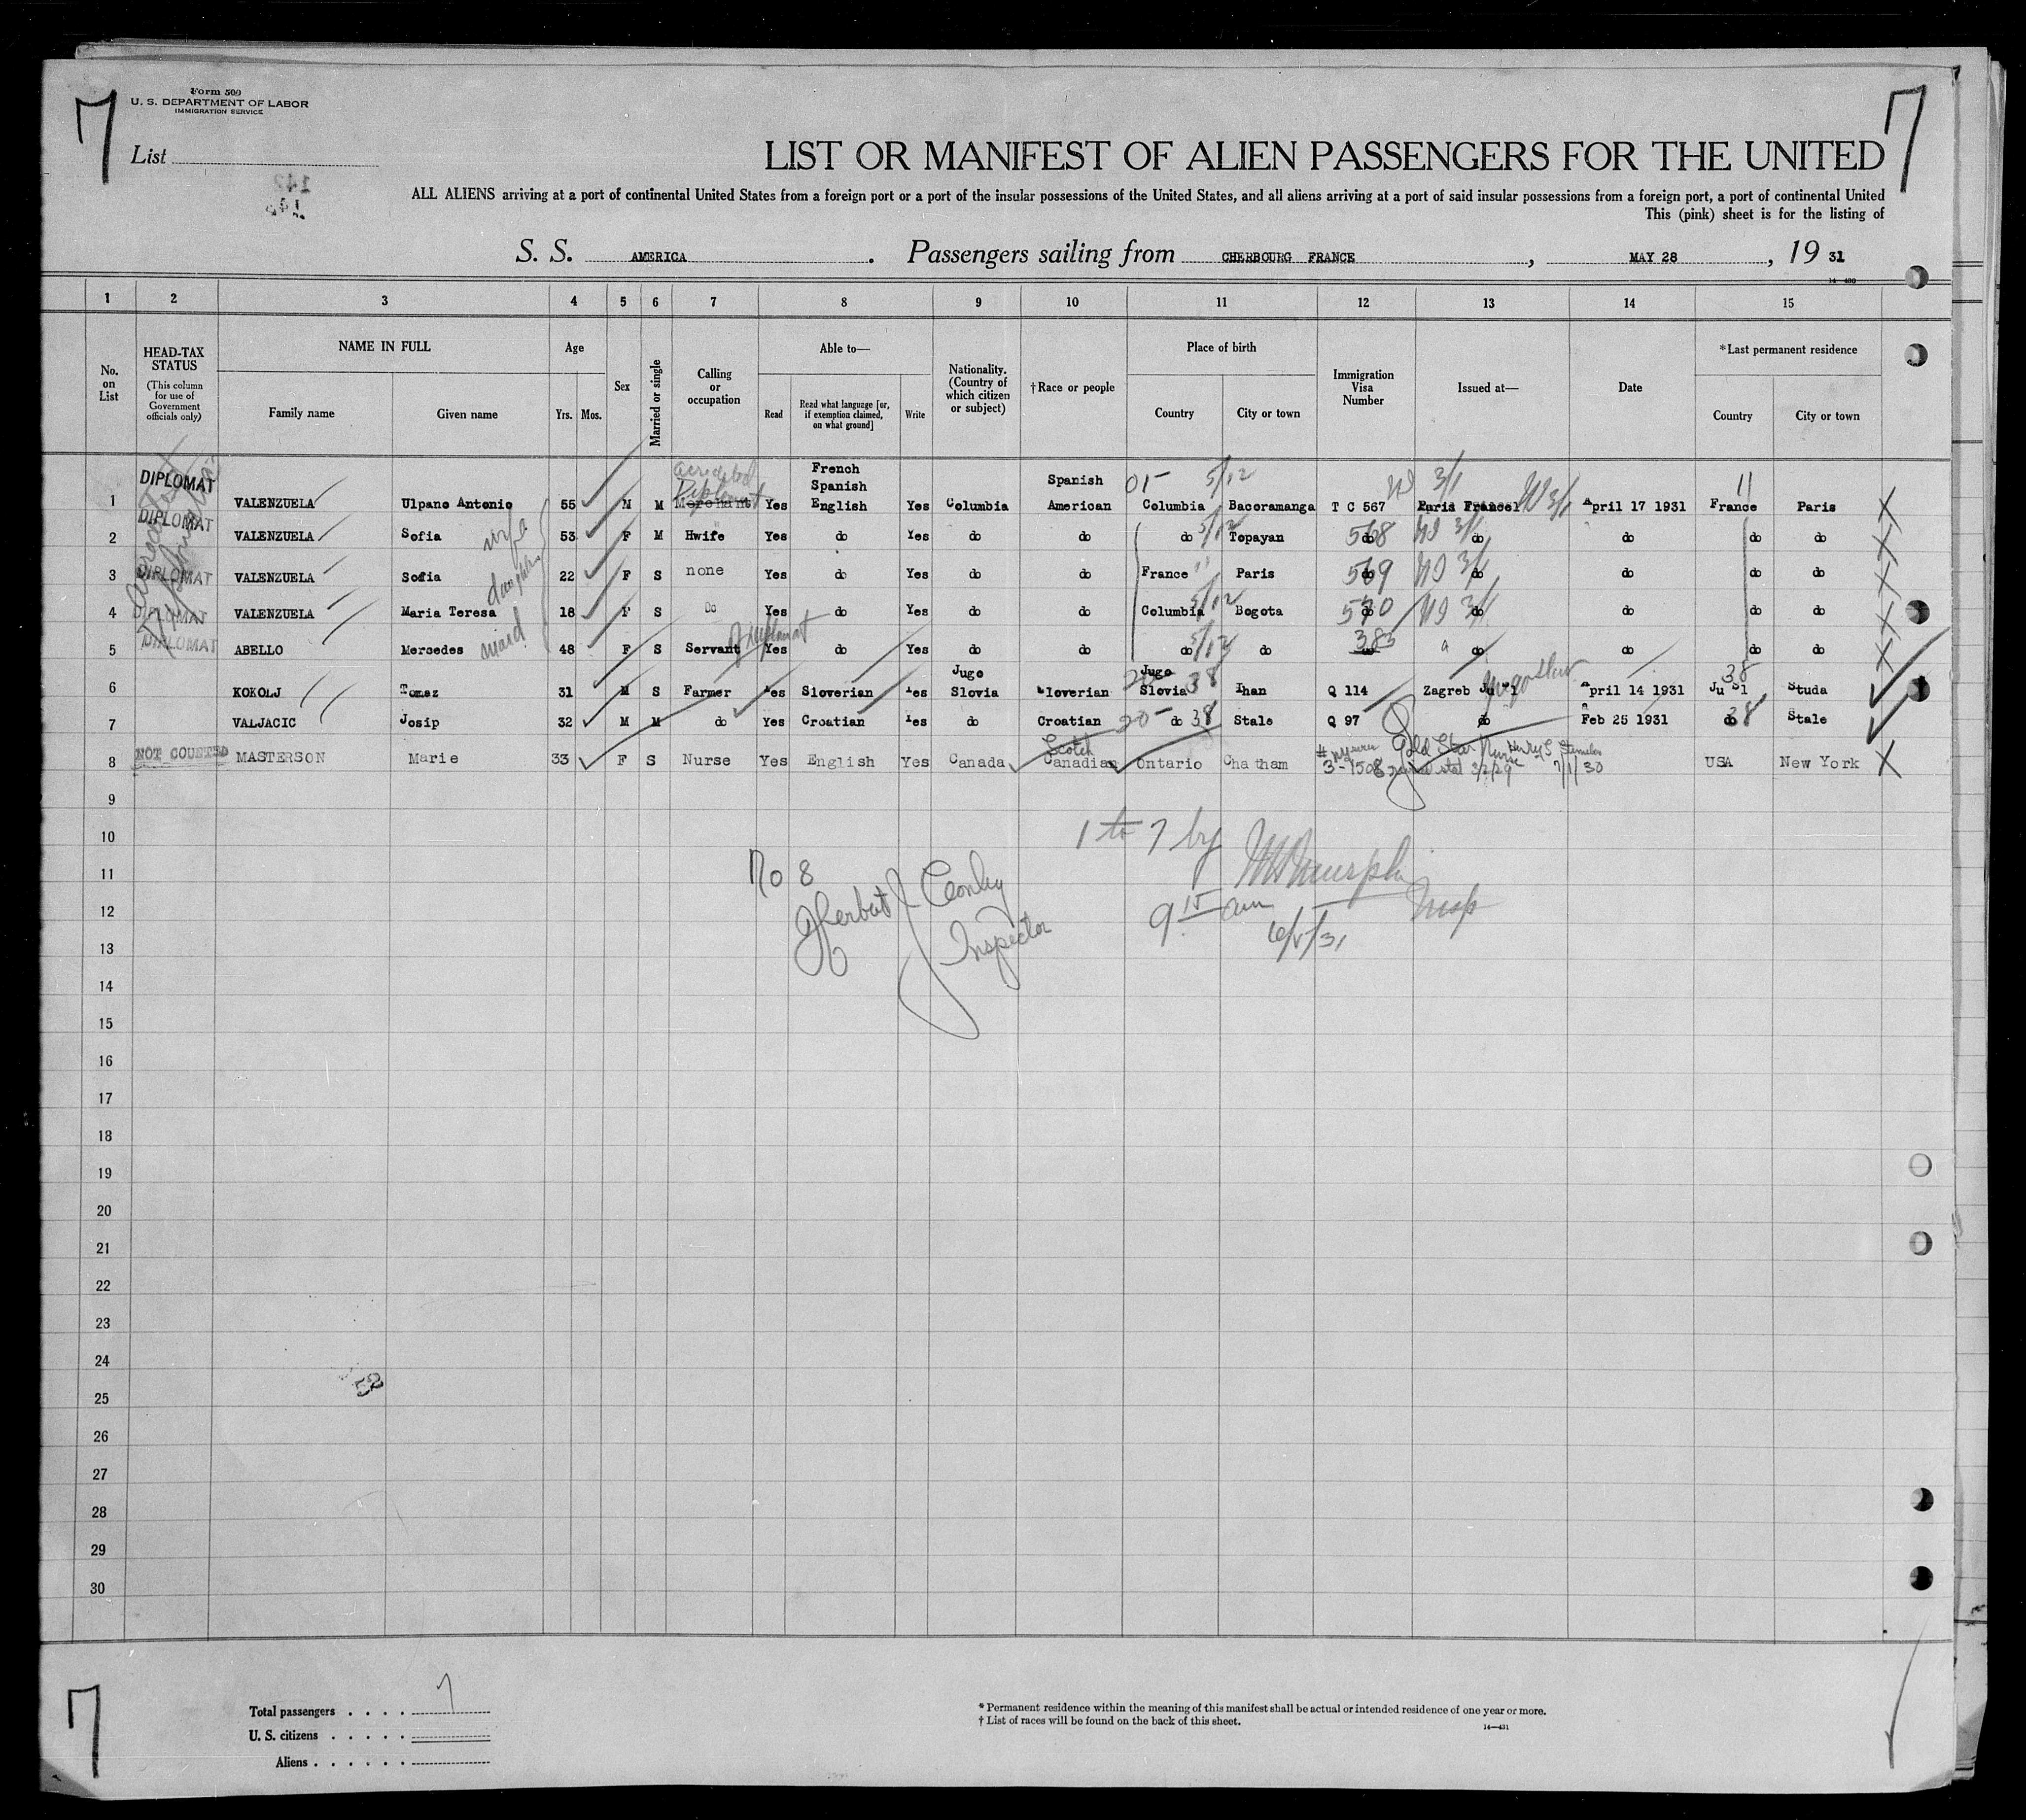 7
7
Form 500
U. S. DEPARTMENT OF LABOR
IMMIGRATION SERVICE
List
LIST OR MANIFEST OF ALIEN PASSENGERS FOR THE UNITED
ALL ALIENS arriving at a port of continental United States from a foreign port or a port of the insular possessions of the United States, and all aliens arriving at a port of said insular possessions from a foreign port, a port of continental United
This (pink) sheet is for the listing of
S. S. AMERICA. Passengers sailing from CHERBOURG FRANCE, MAY 28, 19 31
1 2 3 4 5 6 7 8 9 10 11 12 13 14 15
No. on List
HEAD-TAX STATUS
(This column for use of Government officials only)
NAME IN FULL
Family name Given name
Age
Yrs. Mos.
Sex
Married or single
Calling or occupation
Able to—
Read Read what language [or, if exemption claimed, on what ground] Write
Nationality. (Country of which citizen or subject)
†Race or people
Place of birth
Country City or town
Immigration Visa Number
Issued at—
Date
*Last permanent residence
Country City or town
1 DIPLOMAT VALENZUELA Ulpano Antonio 55 M M Merchant Diplomat Yes French Spanish English Yes Columbia Spanish American 01- Columbia 5/12 Bacoramanga T C 567 3/1 Paris France 3/1 April 17 1931 11 France Paris X
2 DIPLOMAT VALENZUELA Sofia wife 53 F M Hwife Yes do Yes do do do 5/12 Topayan 568 do 3/1 do do do do X
3 DIPLOMAT VALENZUELA Sofia daughters 22 F S none Yes do Yes do do France 11 Paris 569 do 3/1 do do do do X
4 DIPLOMAT VALENZUELA Maria Teresa 18 F S Do Yes do Yes do do Columbia 5/12 Bogota 570 do 3/1 do do do do X
5 DIPLOMAT ABELLO Mercedes maid 48 F S Servant Yes do Yes do do do 5/12 do 383 do do do do do X
6 KOKOLJ Tomaz 31 M S Farmer Yes Sloverian Yes Jugo Slovia Sloverian Jugo Slovia 38 Ihan Q 114 Zagreb Ju Sl Yugoslav April 14 1931 38 Ju Sl Studa
7 VALJACIC Josip 32 M M do Yes Croatian Yes do Croatian 20- do 38 Stale Q 97 do Feb 25 1931 do 38 Stale
8 NOT COUNTED MASTERSON Marie 33 F S Nurse Yes English Yes Canada Scotch Canadian Ontario Chatham Gold Star Nurse 3/2/29 7/1/30 USA New York X
9
10
11
12
13
14
15
16
17
18
19
20
21
22
23
24
25
26
27
28
29
30
1 to 7 by
No 8
Herbert J Conley
Inspector
9 15 am
Insp
52
7
Total passengers 7
U. S. citizens
Aliens
* Permanent residence within the meaning of this manifest shall be actual or intended residence of one year or more.
† List of races will be found on the back of this sheet.
14—431